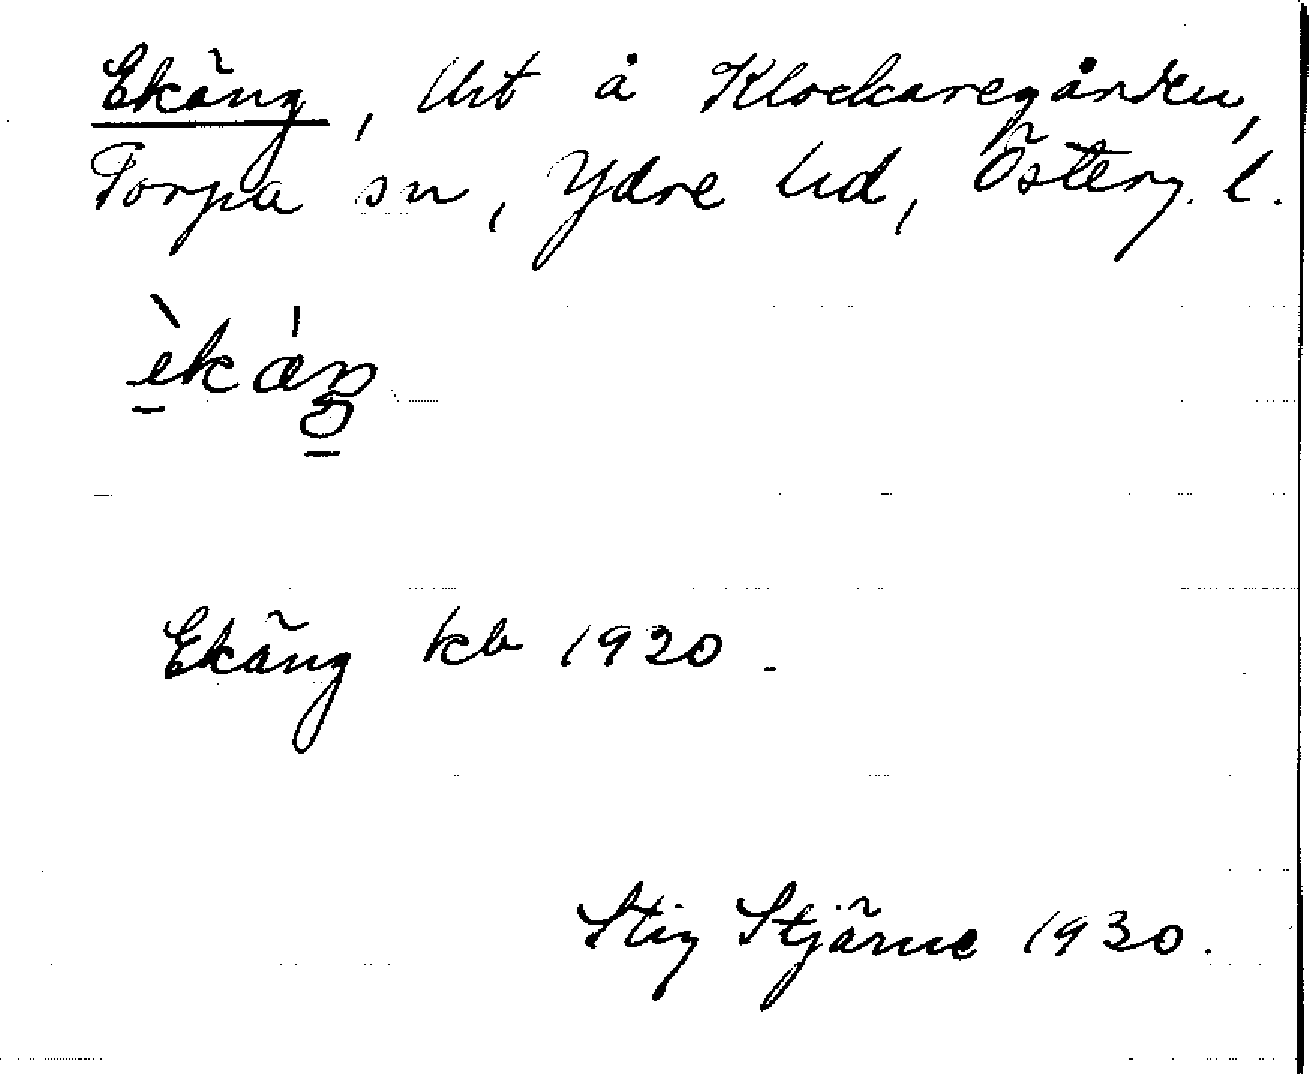 Ekäng, lht å Klockaregården,
Torpa sn, Ydre hd, Österg. l.
èkáŋ
Ekäng kb 1920.
Stig Stjärne 1930.